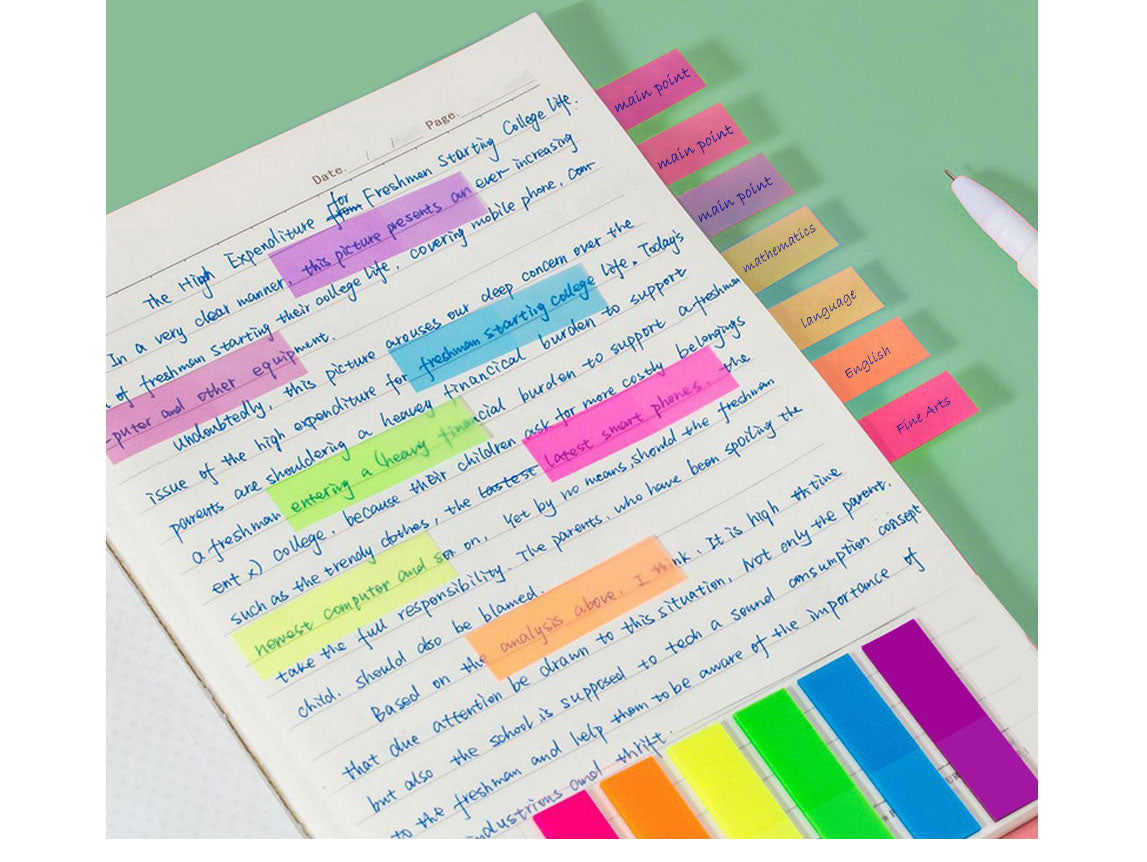 Date. / / Page.
The High Expenditure from for Freshmen Starting College life.
In a very clear manner, this picture presents an ever increasing
of freshmen starting their college life, covering mobile phone, com-
-puter and other equipment.
Undoubtedly, this picture arouses our deep concern over the
issue of the high expenditure for freshman starting college life. Today's
parents are shouldering a heavey financical burden to support
a freshman entering a (heavy financial burden to support a freshman
ent x) college, because their children ask for more costly belongings
such as the trendy clothes, the lastest latest smart phones, the
newest computor and so on. Yet by no means, should the freshman
take the full responsibility. The parents, who have been spoiling the
child, should also be blamed.
Based on the analysis above, I think, It is high thtime
that due attention be drawn to this situation, Not only the parent,
but also the school is supposed to tech a sound consumption consept
to the freshman and help them to be aware of the importance of
industrious and thrift.
main point
main point
main point
mathematics
language
English
Fine Arts